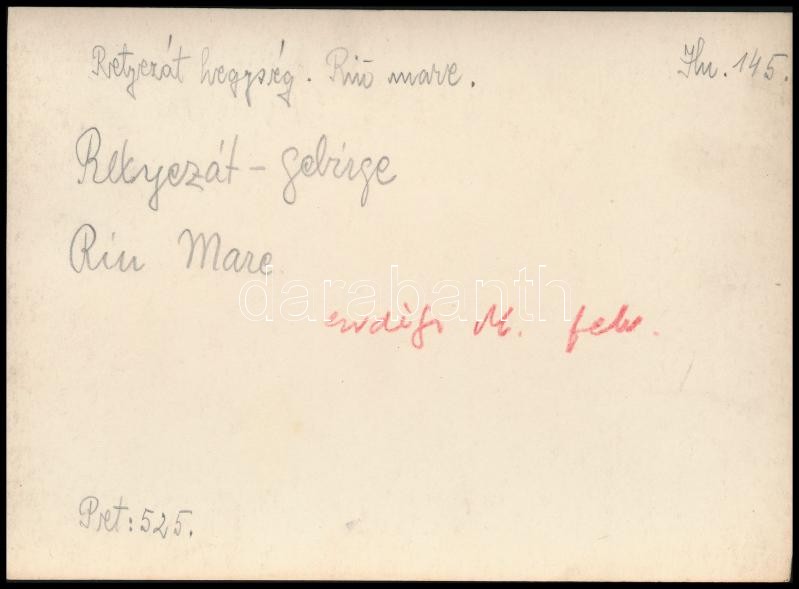 Retyezát hegység. Riu mare.
Hu. 145.
Retyezát - Gebirge
Riu Mare
darabanth
M. felv.
Pret: 525.